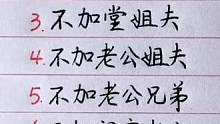 3. 不加堂姐夫
4. 不加老公姐夫
5. 不加老公兄弟